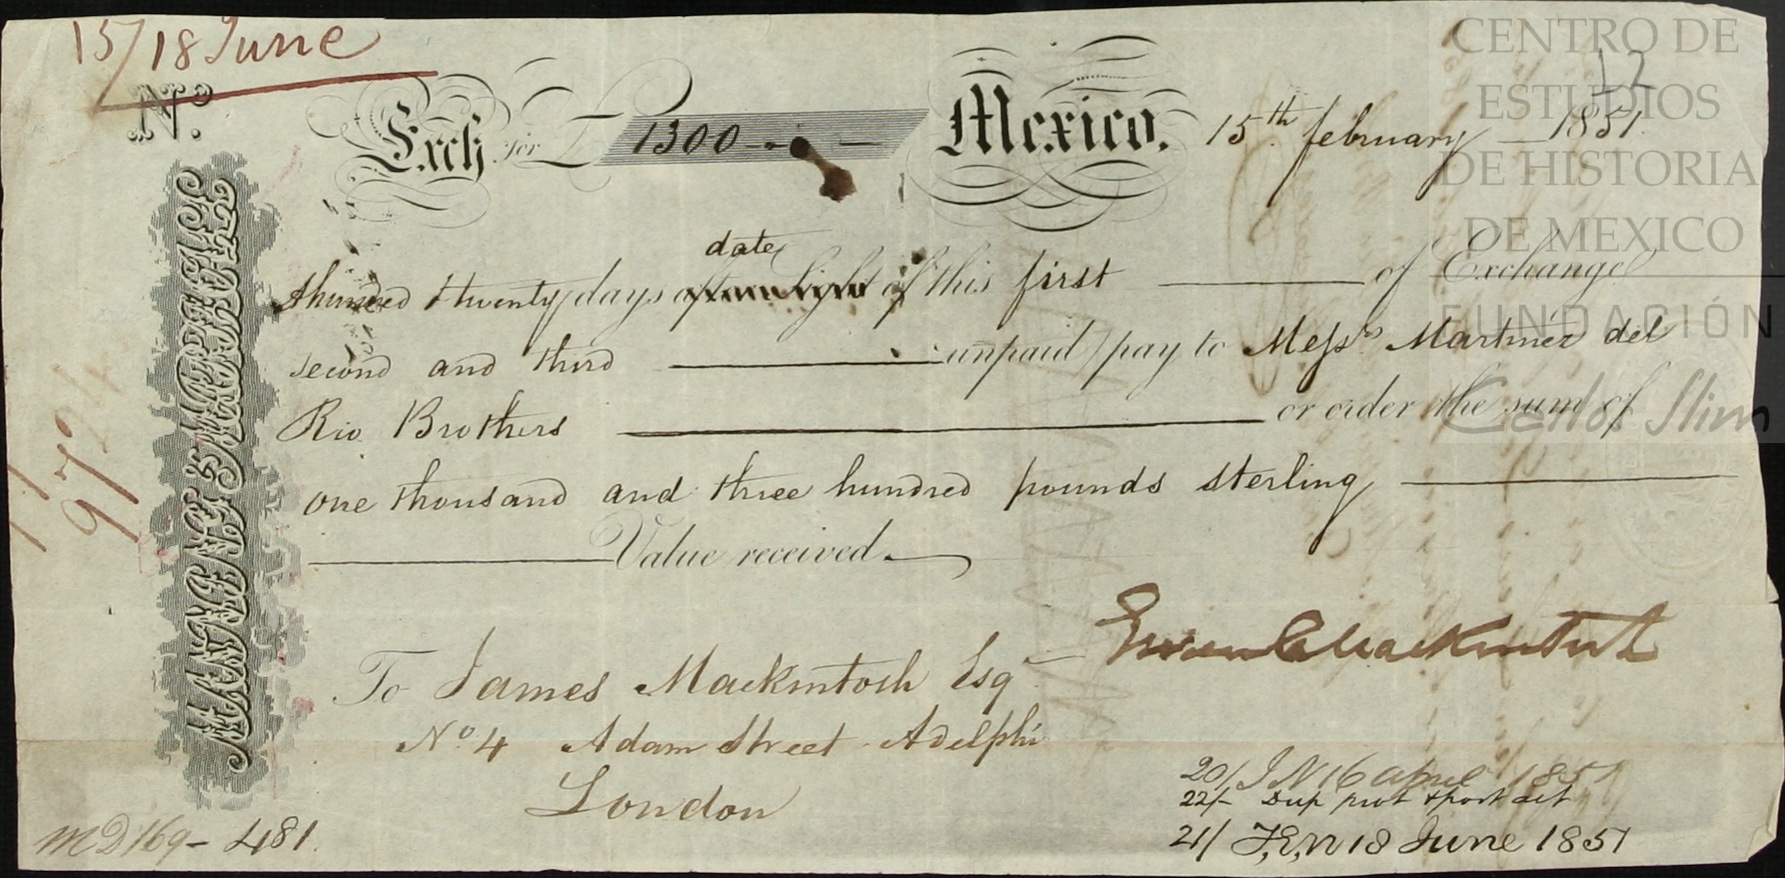 15/18 June
12
CENTRO DE
ESTUDIOS
DE HISTORIA
DE MEXICO
FUNDACIÓN
Carlos Slim
No.
Exch. for £ 1300 Mexico. 15th february 1851.
date
hundred twenty days after sight of this first of Exchange
second and third unpaid pay to Messrs Martinez del
Rio Brothers or order the sum of
one thousand and three hundred pounds sterling
Value received
Ewen C Mackintosh
To James Mackintosh Esqr
No 4 Adam Street Adelphi
London
MANNING & MARSHALL
20/ J N 16 april 1851
22/- Dup prot & post act
21/ J,E,N 18 June 1851
MD169-481.